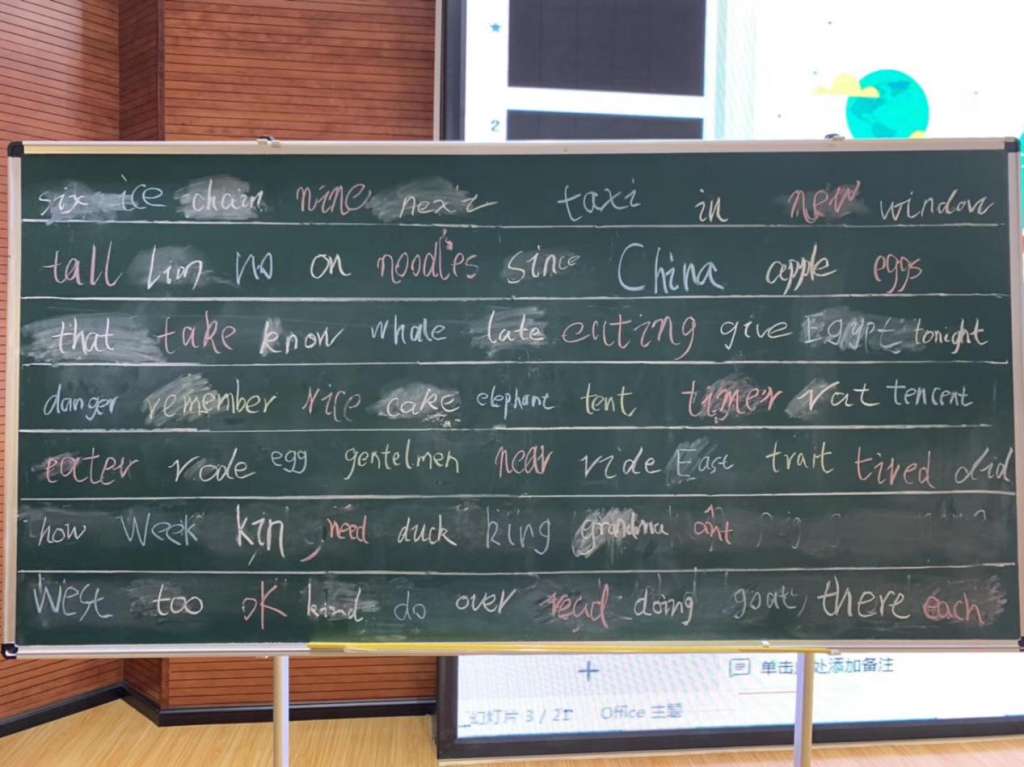 2
six ice chain nine next taxi in new window
tall Lion no on noodles since China apple eggs
that take know whale late eating give Egypt tonight
danger remember rice cake elephant tent timer rat tencent
eater rode egg gentelmen near ride East trait tired did
how Week kin, need duck king grandma ant
West too OK kind do over read doing goat, there each
单击此处添加备注
幻灯片 3 / 21 Office 主题